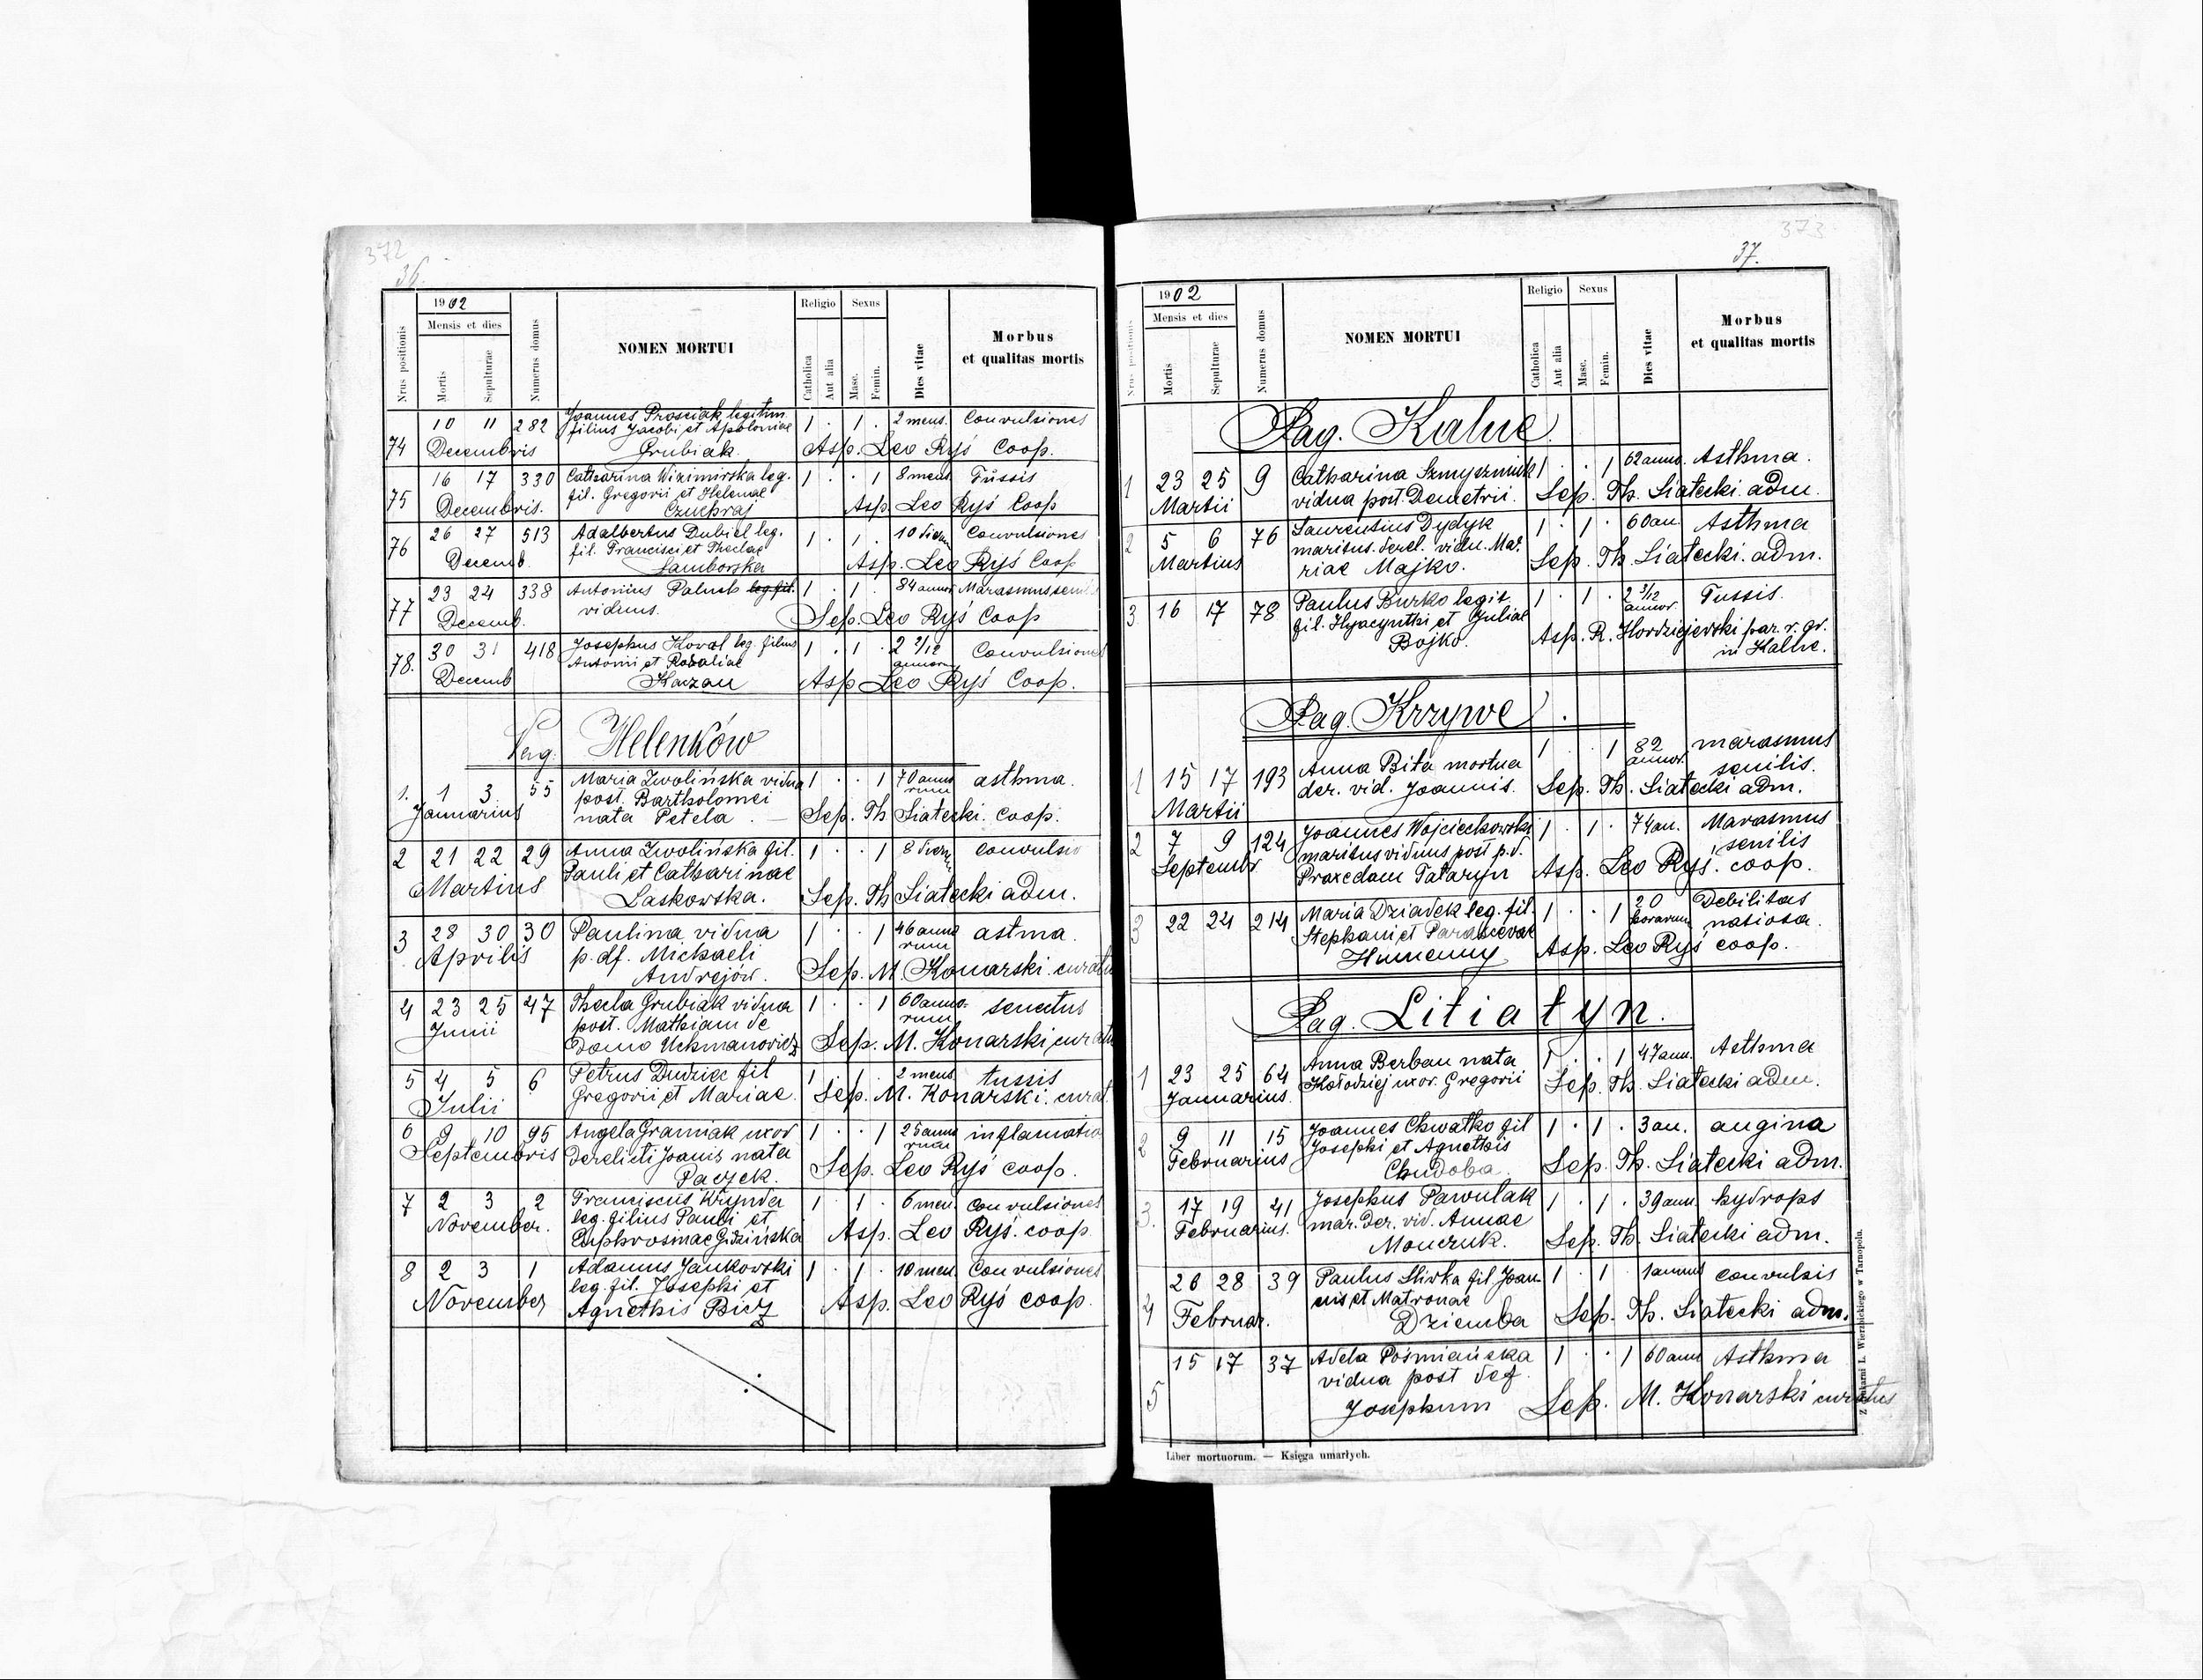 372
36.
1902
Mensis et dies
Nrus positionis
Mortis
Sepulturae
Numerus domus
NOMEN MORTUI
Religio
Sexus
Catholica
Aut alia
Masc.
Femin.
Dies vitae
Morbus
et qualitas mortis
10 11 282 Joannes Prosciak legitim. 1 . 1 . 2 mens. Convulsiones
filius Jacobi et Apoloniae
74 Decembris Grubiak. Asp. Leo Ryś Coop.
16 17 330 Catharina Wizimirska leg. 1 . . 1 8 mens. Tussis
fil. Gregorii et Helenae
75 Decembris. Czuchraj Asp. Leo Ryś Coop
26 27 513 Adalbertus Dubiel leg. 1 . 1 . 10 dierum Convulsiones
76 fil. Francisci et Theclae
Decemb. Samborska Asp. Leo Ryś Coop
23 24 338 Antonius Paluch leg. fil. 1 . 1 . 84 annor Marasmus senilis
77 Decemb. viduus. Sep. Leo Ryś Coop
30 31 418 Josephus Kowal leg. filius 1 . 1 . 2 2/12 annorum Convulsiones
78. Antonii et Rosaliae
Decemb Kaczan Asp Leo Ryś Coop.
Pag. Helenków
1. 1 3 55 Maria Zwolińska vidua 1 . . 1 70 annorum asthma.
Januarius post. Bartholomei
nata Petela. — Sep. Th Siatecki. coop.
2 21 22 29 Anna Zwolińska fil. 1 . . 1 8 dierum convulsio
Martius Pauli et Catharinae
Laskowska. Sep. Th Siatecki adm.
3 28 30 30 Paulina vidua 1 . . 1 46 annorum astma.
Aprilis p. df. Michaeli
Andrejów. Sep. M. Konarski. curatus
4 23 25 47 Thecla Grubiak vidua 1 . . 1 60 annorum senectus
Junii post. Mathiam de
domo Uchmanowicz Sep. M. Konarski curatus
5 4 5 6 Petrus Dudziec fil 1 . 1 . 2 mens. tussis
Julii Gregorii et Mariae. Sep. M. Konarski. curat.
6 9 10 95 Angela Graniak uxor 1 . . 1 25 annorum inflamatio
Septembris derelicti Joanis nata
Pacjek. Sep. Leo Ryś coop.
7 2 3 2 Franciscus Krynda 1 . 1 . 6 men. convulsiones
November. leg. filius Pauli et
Euphrosinae Gidzińska Asp. Leo Ryś. coop
8 2 3 1 Adamus Jankowski 1 . 1 . 10 men. Convulsiones
November leg. fil. Josephi et
Agnethis Bicz Asp. Leo Ryś coop.
373
37.
1902
Mensis et dies
Nrus positionis
Mortis
Sepulturae
Numerus domus
NOMEN MORTUI
Religio
Sexus
Catholica
Aut alia
Masc.
Femin.
Dies vitae
Morbus
et qualitas mortis
Pag. Kalne
1 23 25 9 Catharina Szmyszniuk 1 . . 1 62 anno. Asthma.
Martii vidua post. Demetrii. Sep. Th. Siatecki. adm.
2 5 6 76 Laurentius Dydyk 1 . 1 . 60 an. Asthma
Martius maritus. derel. vidu. Ma-
riae Majko. Sep. Th. Siatecki. adm.
3 16 17 78 Paulus Burko legit. 1 . 1 . 2 3/12 annor. Tussis.
fil. Hyacynthi et Juliae
Bojko. Asp. R. Hordziejevski par. r. gr.
in Kalne.
Pag. Krzywe.
1 15 17 193 Anna Bita mortua 1 . . 1 82 annor. marasmus senilis.
Martii der. vid. Joannis. Sep. Th. Siatecki adm.
2 7 9 124 Joannes Wojciechowski 1 . 1 . 74 an. Marasmus senilis
Septembr maritus viduus post p. d.
Praxedam Tataryn Asp. Leo Ryś. coop.
3 22 24 214 Maria Dziadek leg. fil. 1 . . 1 20 horarum Debilitas natiosa.
Stephani et Parascevae
Humenny Asp. Leo Ryś coop.
Pag. Litiatyn.
1 23 25 64 Anna Berban nata 1 . . 1 47 ann. Asthma
Januarius. Kołodziej uxor. Gregorii Sep. Th. Siatecki adm.
2 9 11 15 Joannes Chwatko fil 1 . 1 . 3 an. angina
Februarius Josephi et Agnethis
Chudoba. Sep. Th. Siatecki adm.
3. 17 19 41 Josephus Pawulak 1 . 1 . 39 ann. hydrops
Februarius. mar. der. vid. Annae
Monczuk. Sep. Th. Siatecki adm.
4 26 28 39 Paulus Sliwka fil Joan- 1 . 1 . 1 annus convulsis
nis et Matronae
Februar. Dziemba Sep. Th. Siatecki adm.
5 15 17 37 Adela Pośmiańska 1 . . 1 60 ann Asthma
vidua post def.
Josephum Sep. M. Konarski curatus
Liber mortuorum. — Księga umarłych.
Z drukarni L. Wierzbickiego w Tarnopolu.